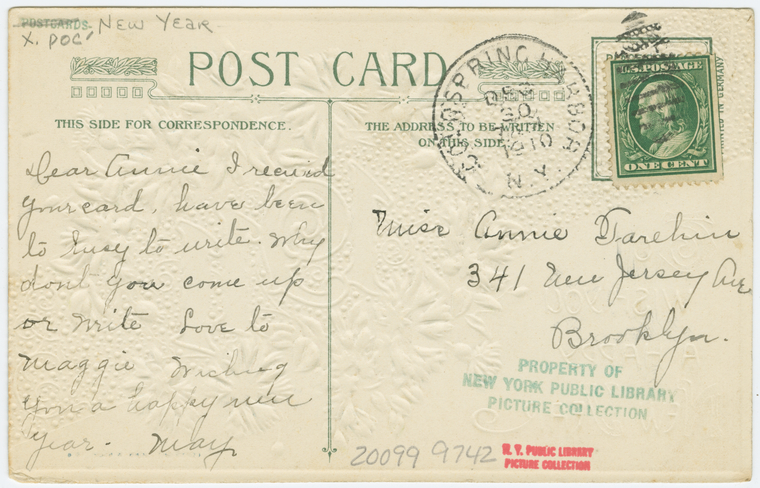 POSTCARDS - NEW YEAR
X. DOC'
POST CARD
THIS SIDE FOR CORRESPONDENCE.
THE ADDRESS TO BE WRITTEN
ON THIS SIDE.
COLD SPRING HARBOR
DEC
30
1910
N.Y.
U.S. POSTAGE
ONE CENT
PRINTED IN GERMANY
Dear Annie I receivd
your card, have been
to busy to write. Why
dont you come up
or write Love to
Maggie Wishing
you a happy new
year. May
Miss Annie
341 New Jersey Ave
Brooklyn.
PROPERTY OF
NEW YORK PUBLIC LIBRARY
PICTURE COLLECTION
20099 9742
N. Y. PUBLIC LIBRARY
PICTURE COLLECTION